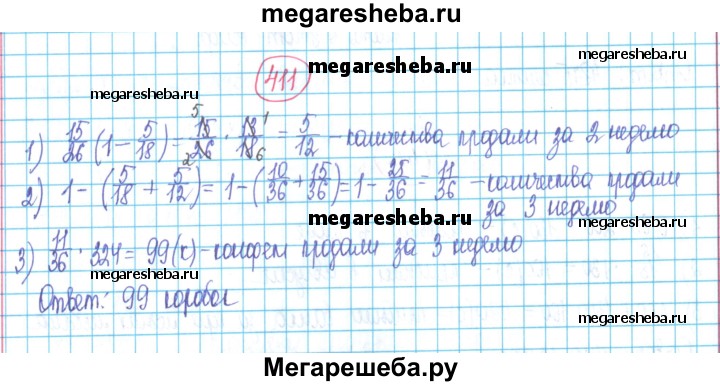 megaresheba.ru
411
megaresheba.ru
megaresheba.ru
megaresheba.ru
1) 15/26 (1 - 5/18) = 15/26 · 13/18 = 5/12 - количества продали за 2 неделю
2) 1 - (5/18 + 5/12) = 1 - (10/36 + 15/36) = 1 - 25/36 = 11/36 - количества продали
за 3 неделю
megaresheba.ru
3) 11/36 · 324 = 99 (к) - конфет продали за 3 неделю
megaresheba.ru
megaresheba.ru
Ответ: 99 коробок
Мегарешеба.ру